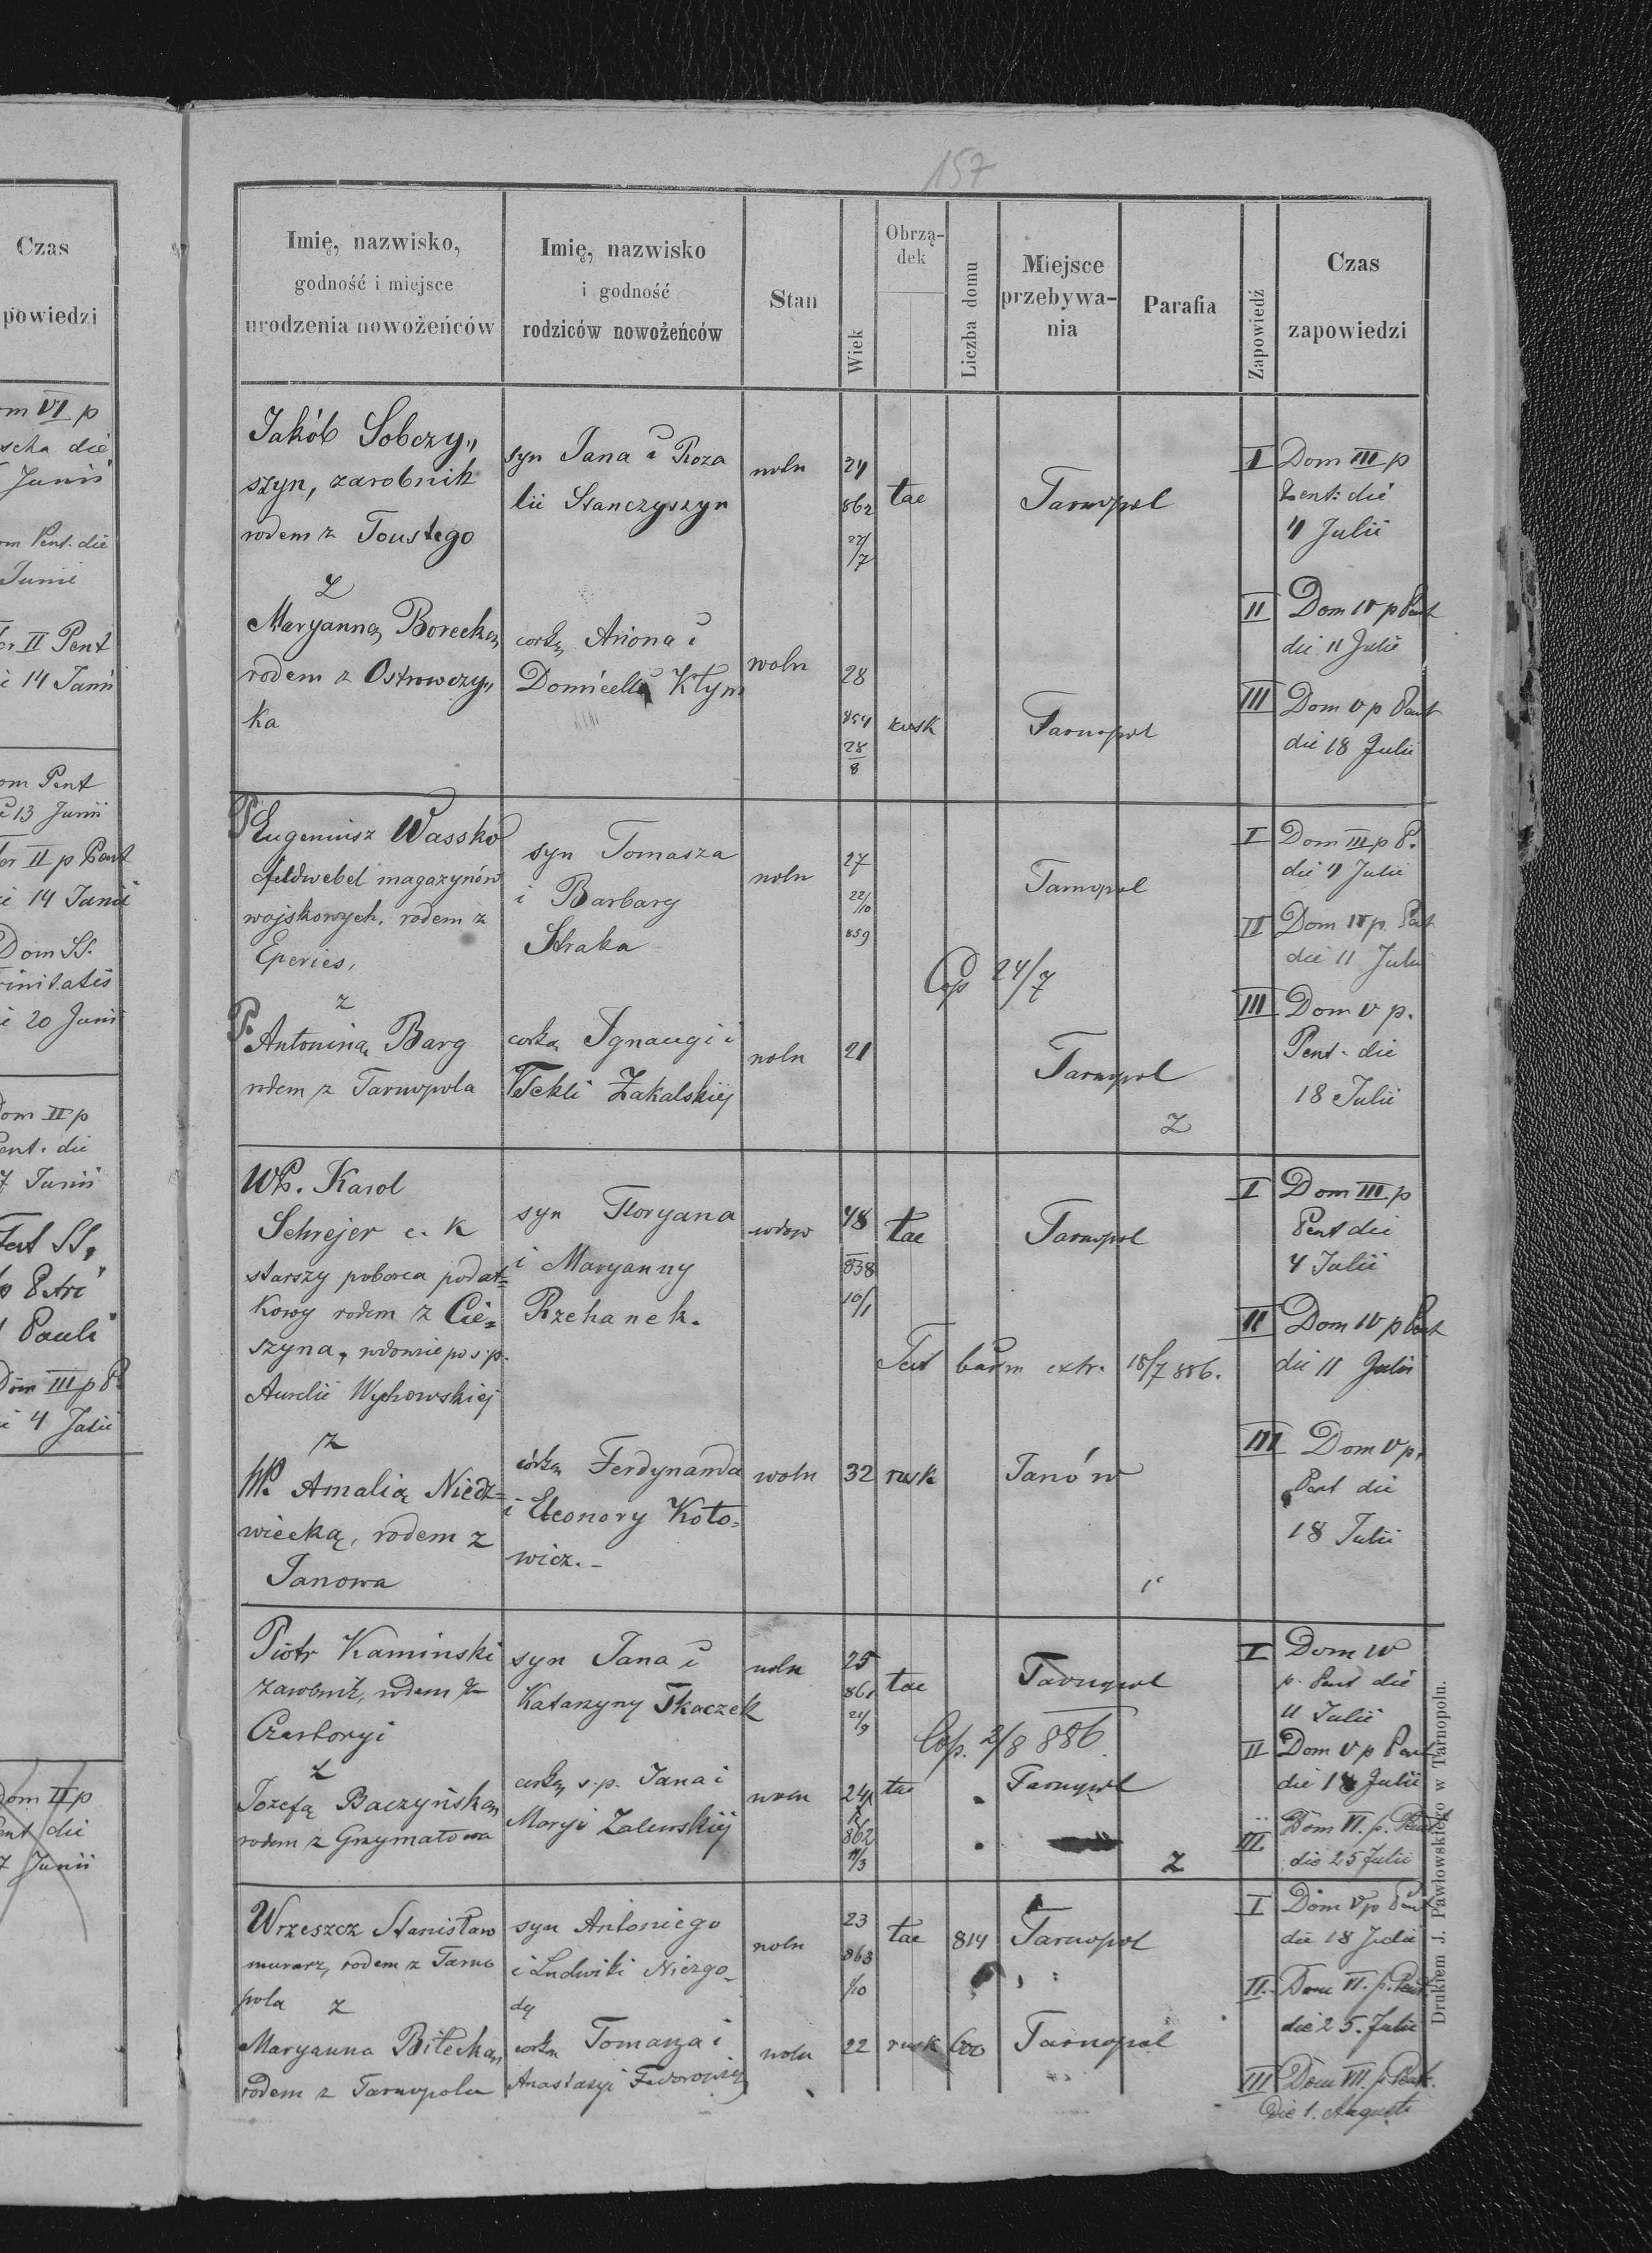 157
Czas
powiedzi
om VI p
scha die
Junii
om Pent. die
Junii
er II Pent
14 Junii
om Pent
13 Junii
er II p Pent
14 Junii
Dom SS.
rinitatis
20 Junii
Dom II p
ent. die
7 Junii
Fest SS.
Petri
Pauli
Dom III p P.
4 Julii
Dom II p
ent die
7 Junii
Imię, nazwisko,
godność i miejsce
urodzenia nowożeńców
Imię, nazwisko
i godność
rodziców nowożeńców
Stan
Wiek
Obrzą-
dek
Liczba domu
Miejsce
przebywa-
nia
Parafia
Zapowiedź
Czas
zapowiedzi
Jakób Sobczy„
szyn, zarobnik
rodem z Toustego
z
Maryanną Borecką
rodem z Ostrowczy„
ka
syn Jana i Roza
lii Stanczyszyn
córką
Domicelli Kłym
woln
woln
24
862
22/7
28
854
28
8
łac
rusk
Tarnopol
Tarnopol
I Dom III p
Pent: die
4 Julii
II Dom IV p Pent
die 11 Julii
III Dom V p Pent
die 18 Julii
P Eugeniusz Wassko
feldwebel magazynów
wojskowych, rodem z
Eperies,
z
P. Antoniną Barg
rodem z Tarnopola
syn Tomasza
i Barbary
Straka
córką Ignacego i
Tekli Zakalskiej
woln
woln
27
22/10
859
21
Cop 24/7
Tarnopol
Tarnopol
z
I Dom III p P.
die 4 Julii
II Dom IV p. Pent
die 11 Julii
III Dom V p.
Pent. die
18 Julii
WP. Karol
Schrejer c. k
starszy poborca podat=
kowy rodem z Cie=
szyna, wdowiec po ś.p.
Aurelii Wychowskiej
z
WP. Amalią Niedz=
wiecką, rodem z
Janowa
syn Floryana
i Maryanny
Rzehanek.
córką Ferdynanda
i Eleonory Koto=
wicz.-
wdow
woln
48
838
10/1
32
łac
rusk
Tarnopol
Test bann extr. 18/7 886.
Janów
I Dom III p
Pent die
4 Julii
II Dom IV p Pent
die 11 Julii
III Dom V p.
Pent die
18 Julii
Piotr Kaminski
zarobnik, rodem z
Czartoryi
z
Józefą Baczyńską
rodem z Grzymałowa
syn Jana i
Katarzyny Tkaczek
córką ś.p. Jana i
Maryi Zalewskiej
woln
woln
25
861
24/9
24
862
11/3
łac
łac
Tarnopol
Cop. 2/8 886.
Tarnopol
z
I Dom IV
p. Pent die
11 Julii
II Dom V p Pent
die 18 Julii
III Dom VI. p. Pent.
die 25 Julii
Wrzeszcz Stanisław
murarz, rodem z Tarno
pola z
Maryanna Biłecką
rodem z Tarnopola
syn Antoniego
i Ludwiki Niezgo-
dy
córką Tomasza i
Anastazyi
woln
woln
23
863
1/10
22
łac
rusk
814
600
Tarnopol
Tarnopol
I Dom V p Pent
die 18 Julii
II. Dom VI. p. Pent.
die 25. Julii
III Dom VII. p. Pent.
die 1. Augusti
Drukiem J. Pawłowskiego w Tarnopolu.